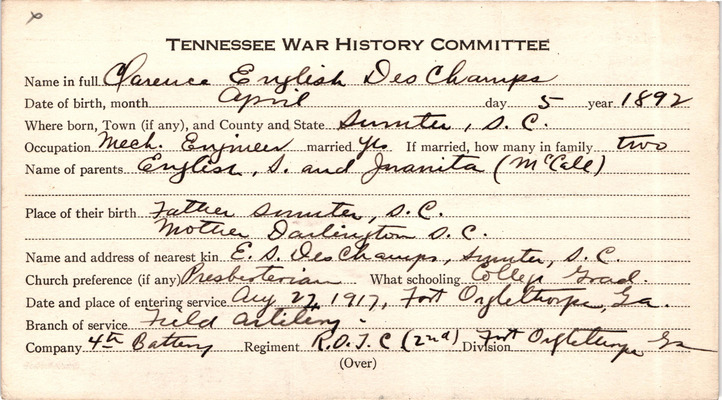 TENNESSEE WAR HISTORY COMMITTEE
Name in full Clarence English DesChamps
Date of birth, month April day 5 year 1892
Where born, Town (if any), and County and State Sumter, S. C.
Occupation Mech. Engineer married yes If married, how many in family two
Name of parents English, S. and Juanita (McCall)
Place of their birth Father Sumter, S. C.
Mother Darlington S. C.
Name and address of nearest kin E. S. DesChamps, Sumter, S. C.
Church preference (if any) Presbyterian What schooling College Grad.
Date and place of entering service Aug 27, 1917, Fort Oglethorpe, Ga.
Branch of service Field Artillery.
Company 4th Battery Regiment R.O.T.C (2nd) Division Fort Oglethorpe Ga
(Over)